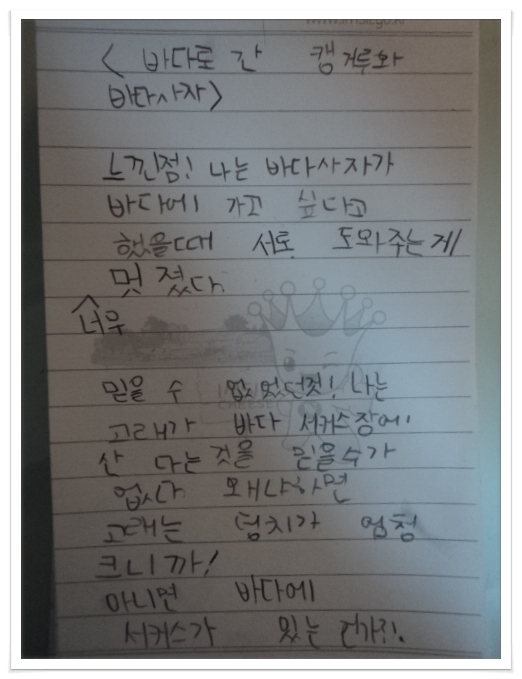 < 바다로 간 캥거루와
바다사자>
느낀점! 나는 바다사자가
바다에 가고 싶다고
했을때 서로 도와주는게
멋졌다
너무
믿을 수 없었던것! 나는
고래가 바다 서커스장에
산 다는 것을 믿을수가
없다 왜냐하면
고래는 덩치가 엄청
크니까!
아니면 바다에
서커스가 있는 건가?!.